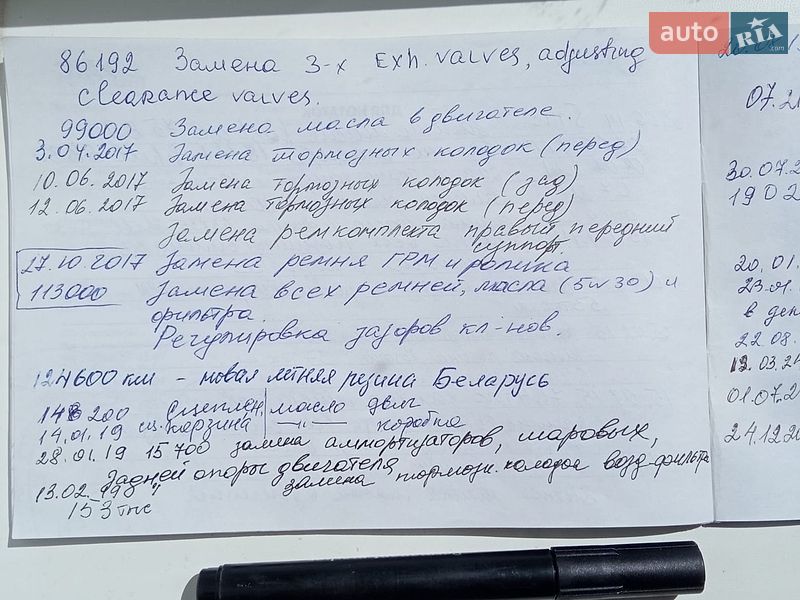 auto RIA .com
86192 Замена 3-х Exh. valves, adjusting
clearance valves.
99000 Замена масла в двигателе.
3.04.2017 Замена тормозных колодок (перед)
10.06.2017 Замена тормозных колодок (зад)
12.06.2017 Замена тормозных колодок (перед)
Замена ремкомплекта правый передний
суппорт.
27.10.2017 Замена ремня ГРМ и ролика
113000 Замена всех ремней, масла (5w30) и
фильтра.
Регулировка зазоров кл-нов.
124600 км - новая летняя резина Беларусь
148 200 сцеплен. масло двиг
14.01.19 корзина —"— коробка
28.01.19 15 700 замена аммортизаторов, шаровых,
Задней опоры двигателя
13.02.19г замена тормозн. колодок возд-фильтра
153 тыс
07.2
30.07.2
1902
20.01.
23.01.
в ден
22 08.
12.03.24
01.07.2
24.12.20